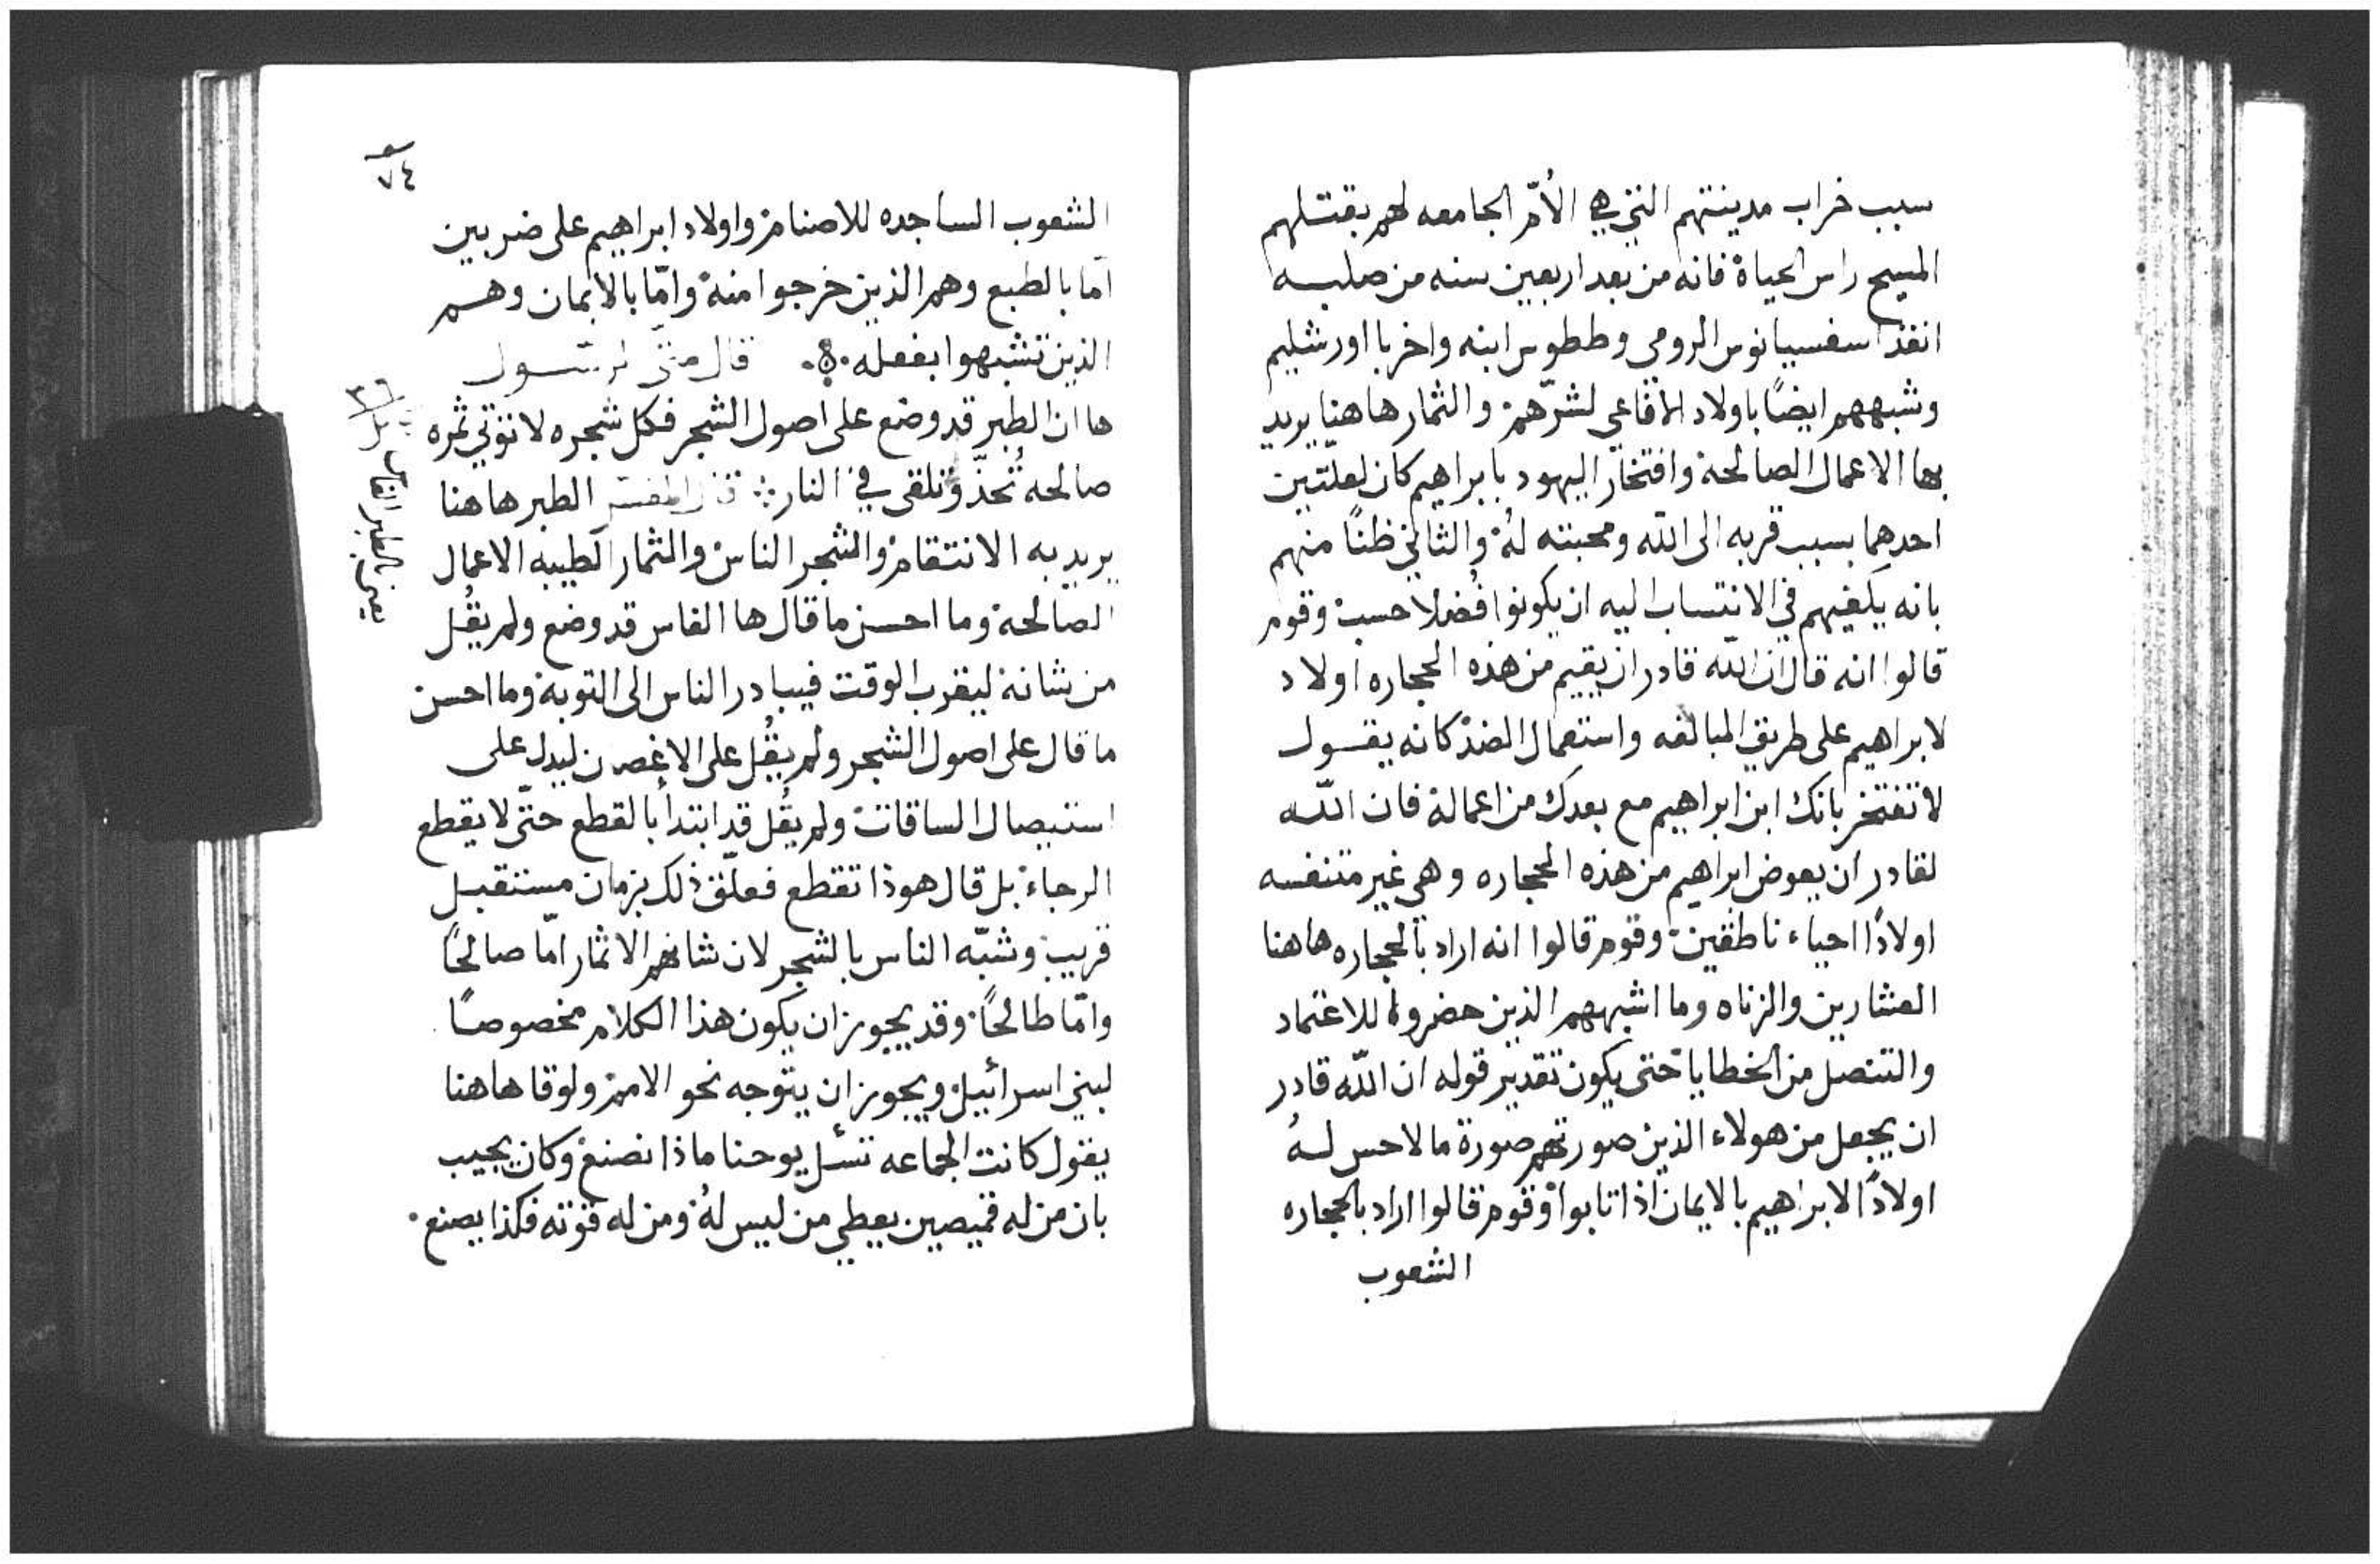 سبب خراب مدينتهم التي هي الأمّ الجامعه لهم بقتلهم
المسيح راس الحياة فانه من بعد اربعين سنه من صلبه
انفذ اسفسيانوس الرومي وططوس ابنه واخربا اورشليم
وشبههم ايضًا باولاد الافاعي لشرّهم والثمار هاهنا يريد
بها الاعمال الصالحة وافتخار اليهود بابراهيم كان لعلّتين
احدهما بسبب قربه الى الله ومحبته لهُ والثاني ظنًا منهم
بانه يكفيهم في الانتساب اليه ان يكونوا فُضلا حسب وقوم
قالوا انه قال ان الله قادر ان يقيم من هذه الحجاره اولاد
لابراهيم على طريق المبالغه واستعمال الضد كانه يقول
لا تفتخر بانك ابن ابراهيم مع بعدك من اعماله فان الله
لقادر ان يعوض ابراهيم من هذه الحجاره وهي غير متنفسه
اولادًا احياء ناطقين وقوم قالوا انه اراد بالحجاره هاهنا
العشارين والزناه وما اشبههم الذين حضروا للاعتماد
والتنصل من الخطايا حتى يكون تقدير قوله ان الله قادر
ان يجعل من هولاء الذين صورتهم صورة ما لا حس لهُ
اولادًا لابراهيم بالايمان اذا تابوا وقوم قالوا اراد بالحجاره
الشعوب
٧٤
الشعوب الساجده للاصنام واولاد ابراهيم على ضربين
امّا بالطبع وهم الذين خرجوا منهُ وامّا بالايمان وهم
الذين تشبهوا بفعله قال متّى الرسول
ها ان الطبر قد وضع على اصول الشجر فكل شجره لا تؤتي ثمره
صالحه تُحذّ وتلقى في النار قال المفسر الطبر هاهنا
يريد به الانتقام والشجر الناس والثمار الطيبه الاعمال
الصالحة وما احسن ما قال ها الفاس قد وضع ولم يقُل
من شانه ليقرب الوقت فيبادر الناس الى التوبة وما احسن
ما قال على اصول الشجر ولم يقُل على الاغصان ليدل على
استيصال الساقات ولم يقُل قد ابتدأ بالقطع حتّى لا يقطع
الرجاء بل قال هوذا تقطع فعلّق ذلك بزمان مستقبل
قريب وشبّه الناس بالشجر لان شانهم الاثمار امّا صالحًا
وامّا طالحًا وقد يجوز ان يكون هذا الكلام مخصوصًا
لبني اسرائيل ويجوز ان يتوجه نحو الامم ولوقا هاهنا
يقول كانت الجماعه تسئل يوحنا ماذا نصنع وكان يجيب
بان من له قميصين يعطي من ليس لهُ ومن له قوته فكذا يصنع
يعني الطبر الفاس